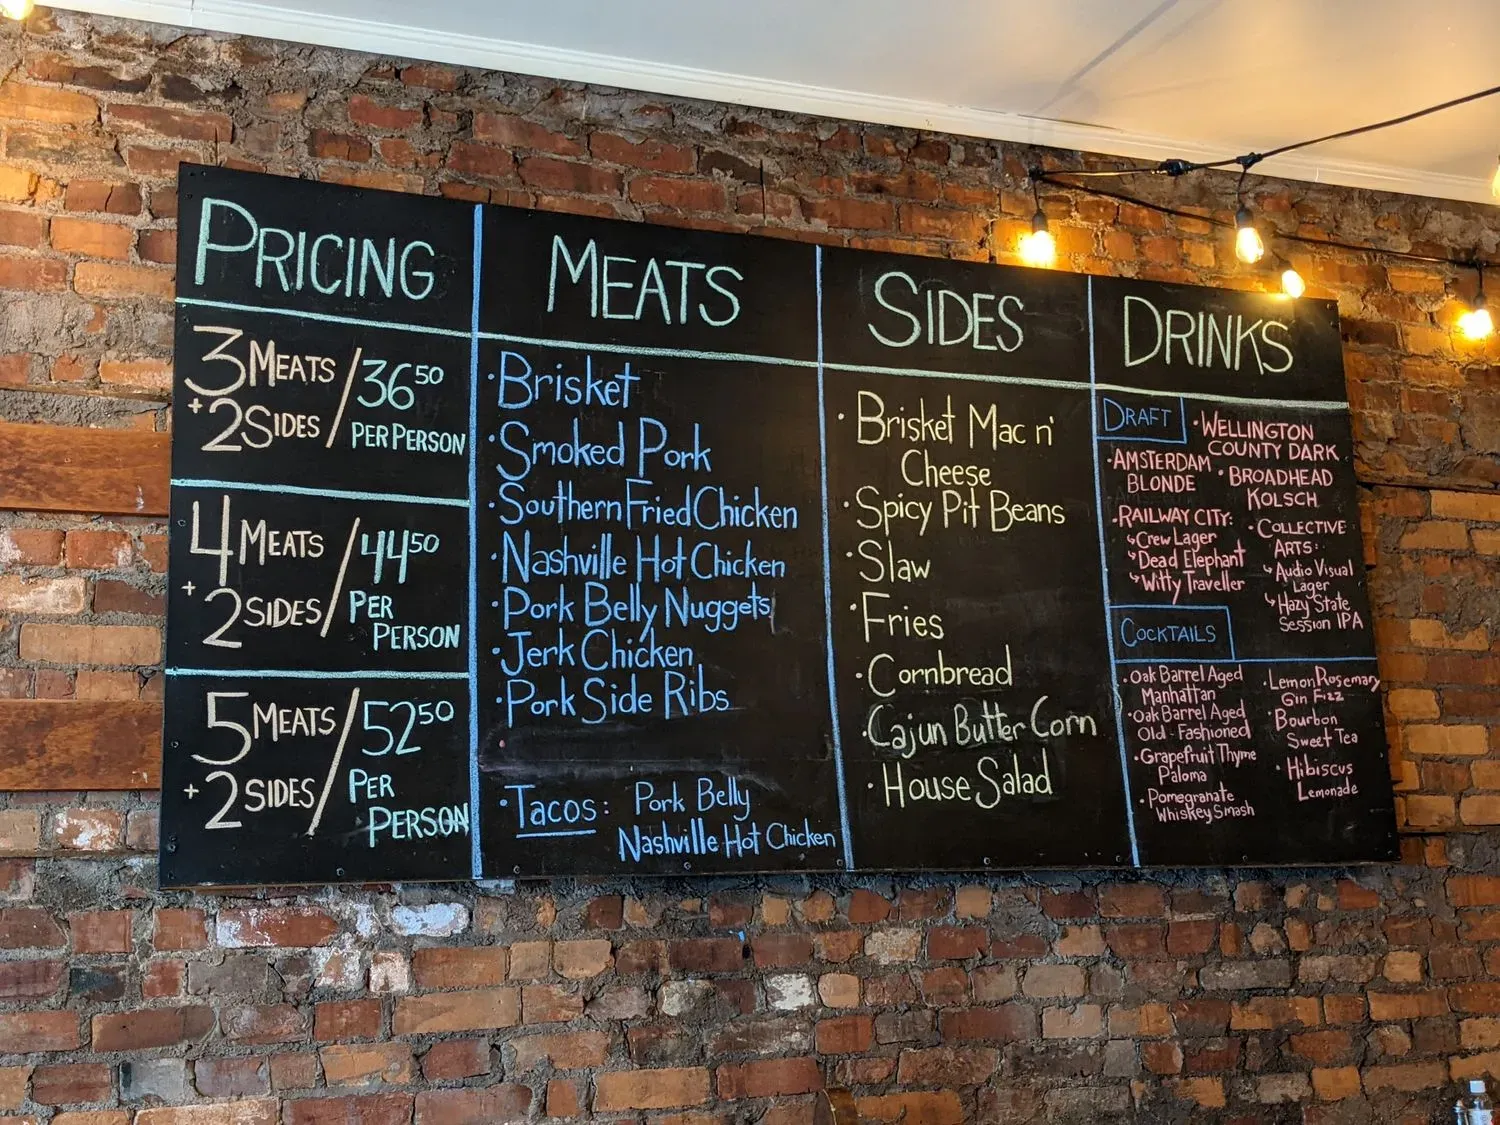 PRICING
3 MEATS / 36 50
+ 2 SIDES / PER PERSON
4 MEATS / 44 50
+ 2 SIDES / PER
PERSON
5 MEATS / 52 50
+ 2 SIDES / PER
PERSON
MEATS
· Brisket
· Smoked Pork
· Southern Fried Chicken
· Nashville Hot Chicken
· Pork Belly Nuggets
· Jerk Chicken
· Pork Side Ribs
· Tacos: Pork Belly
Nashville Hot Chicken
SIDES
· Brisket Mac n'
Cheese
· Spicy Pit Beans
· Slaw
· Fries
· Cornbread
· Cajun Butter Corn
· House Salad
DRINKS
DRAFT
· AMSTERDAM
BLONDE
· RAILWAY CITY:
↳ Crew Lager
↳ Dead Elephant
↳ Witty Traveller
· WELLINGTON
COUNTY DARK
· BROADHEAD
KOLSCH
· COLLECTIVE
ARTS:
↳ Audio Visual
Lager
↳ Hazy State
Session IPA
COCKTAILS
· Oak Barrel Aged
Manhattan
· Oak Barrel Aged
Old-Fashioned
· Grapefruit Thyme
Paloma
· Pomegranate
Whiskey Smash
· Lemon Rosemary
Gin Fizz
· Bourbon
Sweet Tea
· Hibiscus
Lemonade